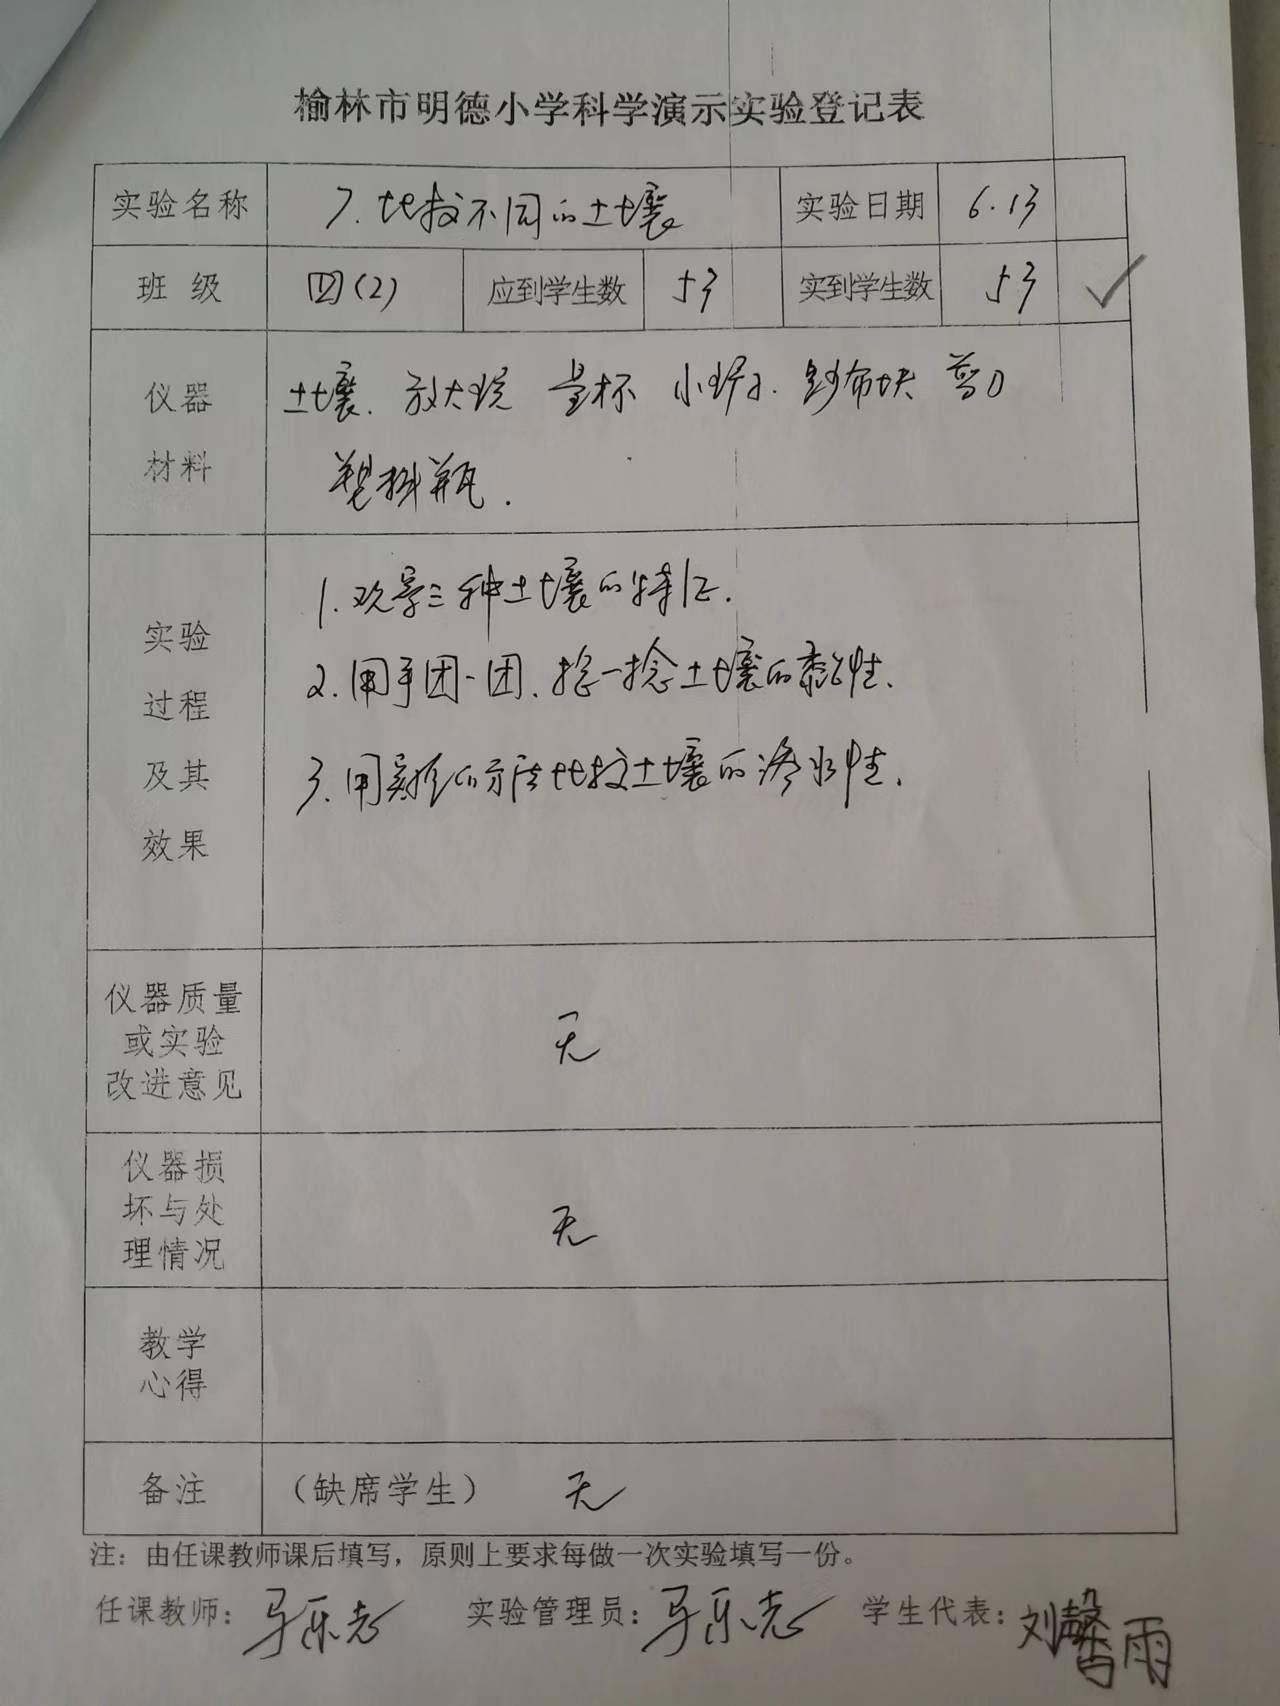 榆林市明德小学科学演示实验登记表
实验名称 7.比较不同的土壤 实验日期 6.13
班级 四(2) 应到学生数 53 实到学生数 53 ✓
仪器材料 土壤. 放大镜 量杯 小 纱布块 剪刀
塑料瓶.
实验过程及其效果
1.观察三种土壤的特征.
2.用手团一团.捻一捻土壤的黏性.
3.用实验的方法比较土壤的渗水性.
仪器质量或实验改进意见 无
仪器损坏与处理情况 无
教学心得
备注 (缺席学生) 无
注：由任课教师课后填写，原则上要求每做一次实验填写一份。
任课教师：马乐志 实验管理员：马乐志 学生代表：刘馨雨